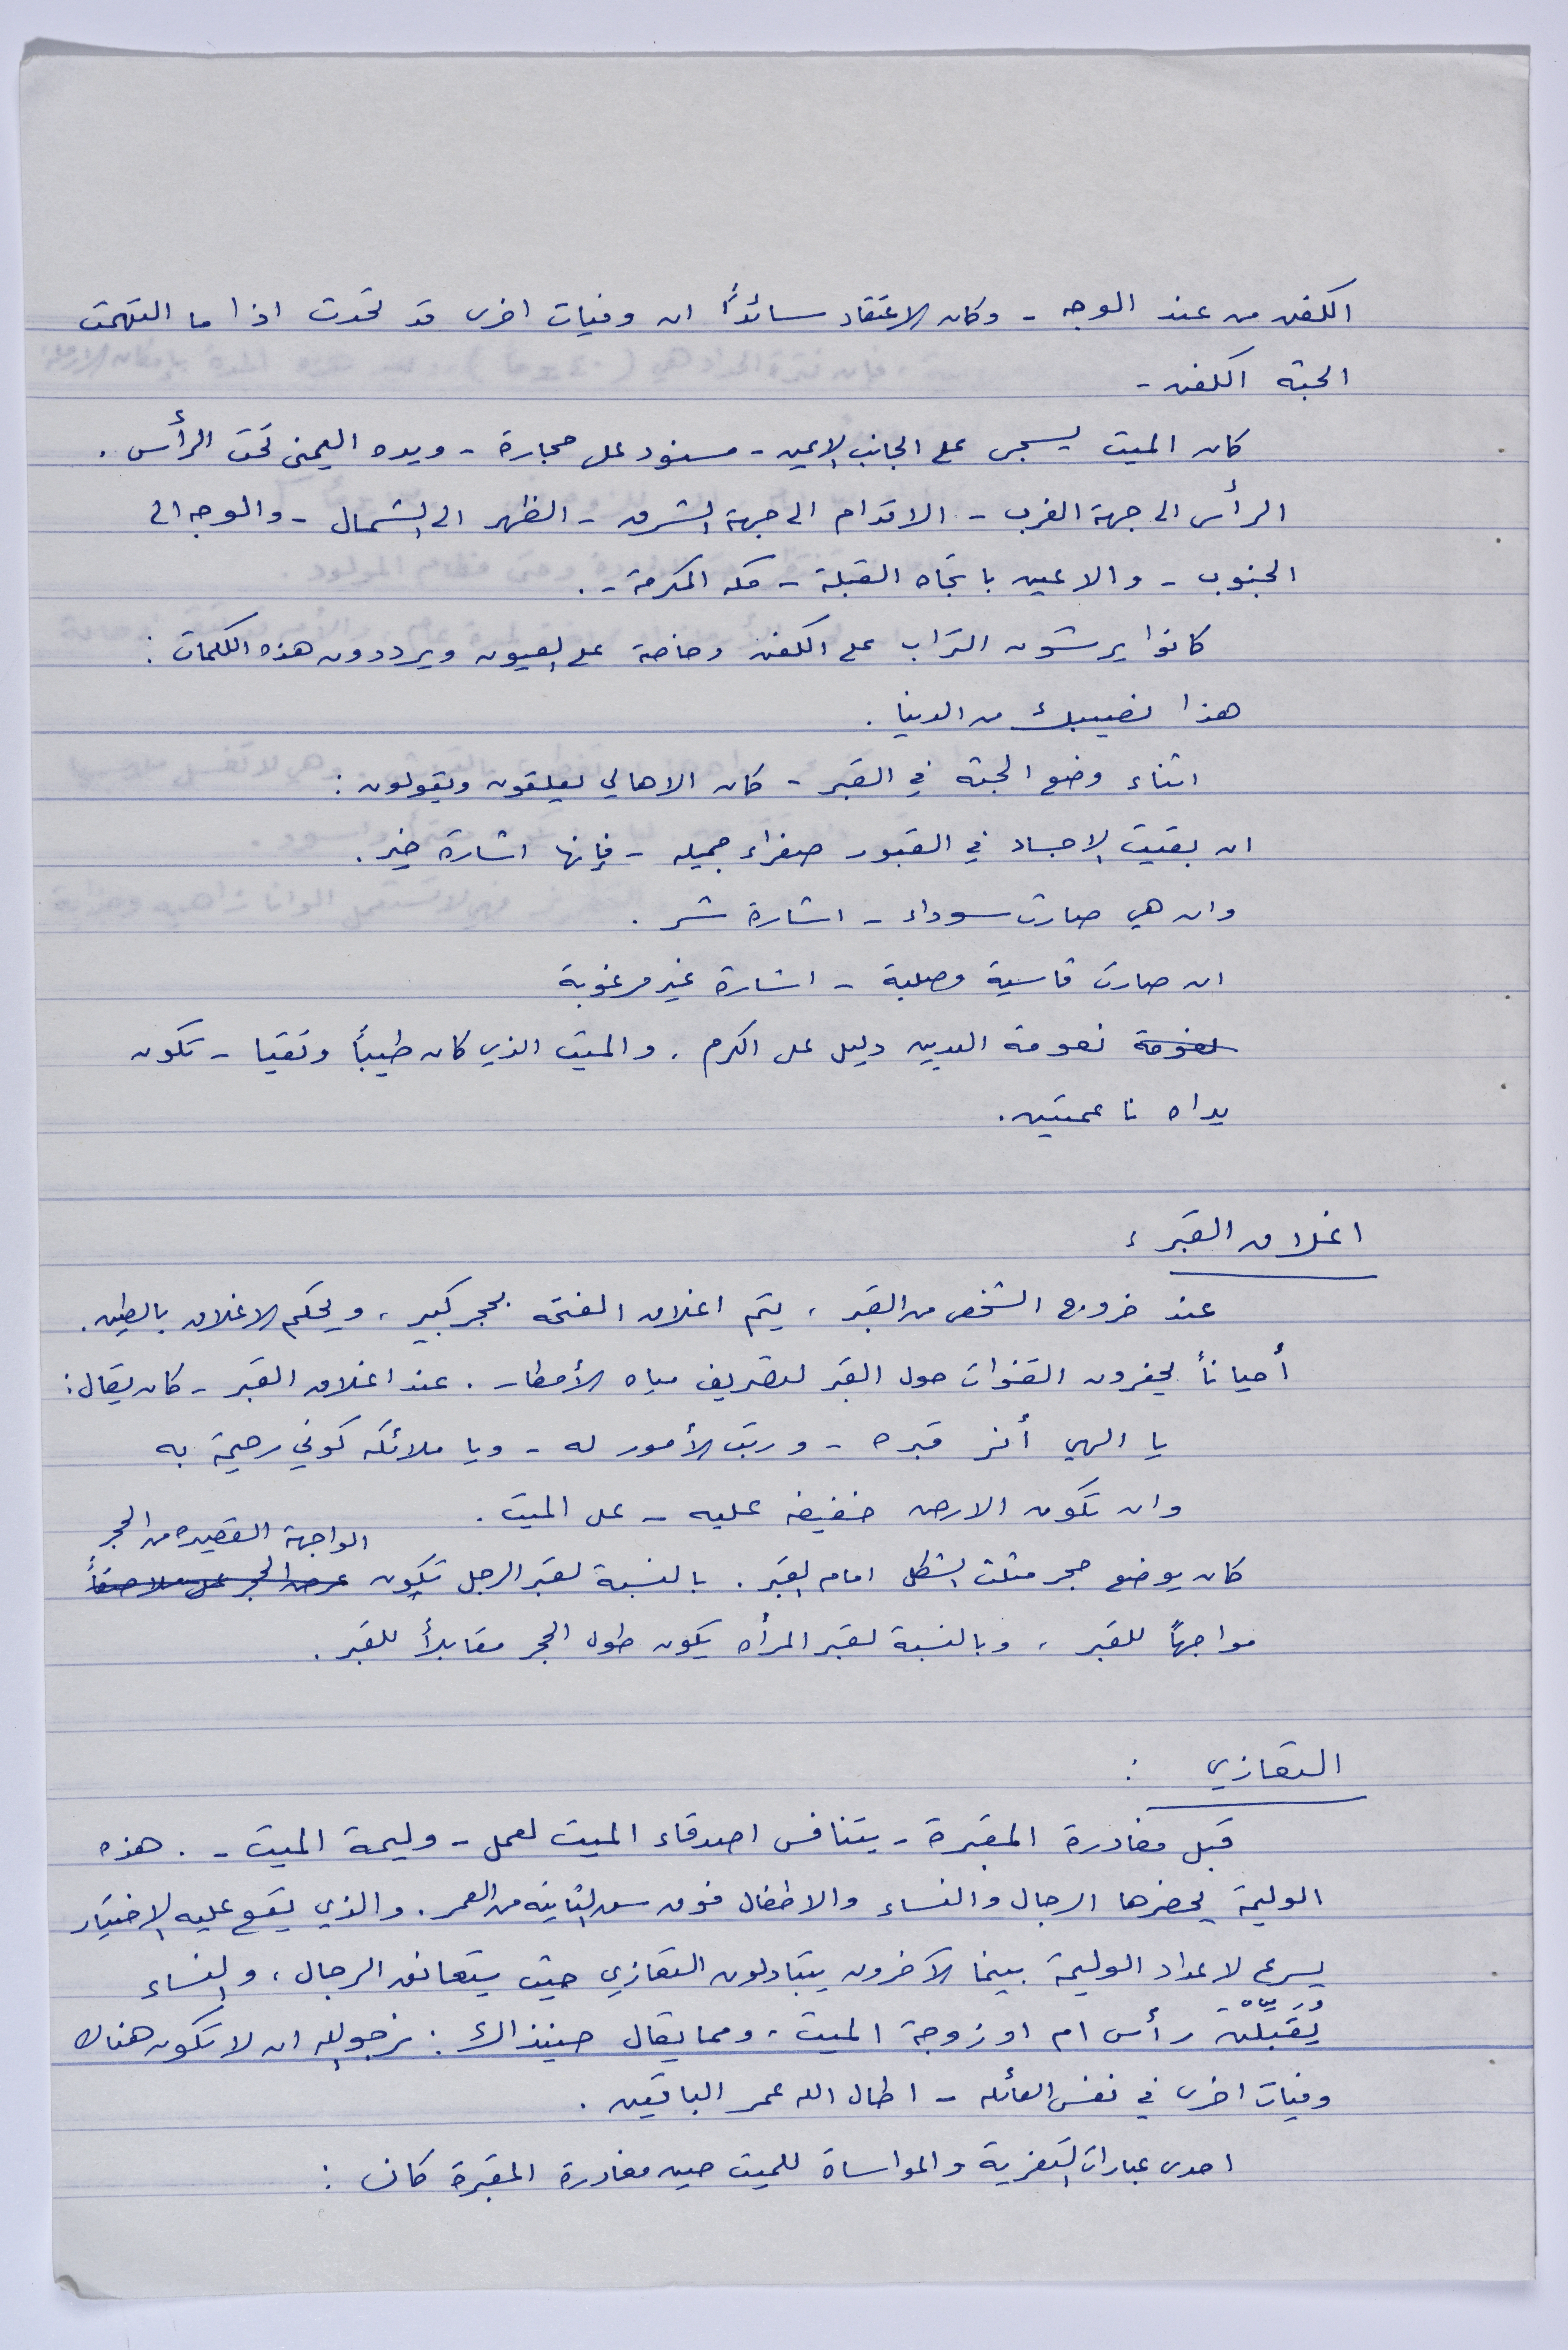 الكفن من عند الوجه - وكان الاعتقاد سائدًا ان وفيات اخرى قد تحدث اذا ما التهمت
الجثة الكفن -
كان الميت يسجى على الجانب الايمن - مسنود على حجارة - ويده اليمنى تحت الرأس .
الرأس الى جهة الغرب - الاقدام الى جهة الشرق - الظهر الى الشمال - والوجه الى
الجنوب - والاعين باتجاه القبلة - مكه المكرمة - .
كانوا يرشون التراب على الكفن وخاصة على العيون ويرددون هذه الكلمات :
هذا نصيبك من الدنيا .
اثناء وضع الجثة في القبر - كان الاهالي يعلقون ويقولون :
ان بقيت الاجساد في القبور صفراء جميله - فإنها اشارة خير .
وان هي صارت سوداء - اشارة شر .
ان صارت قاسية وصلبة - اشارة غير مرغوبة
نعومة نعومة اليدين دليل على الكرم . والميت الذي كان طيبًا وتقيا - تكون
يداه ناعمتين .
اغلاق القبر :
عند خروج الشخص من القبر ، يتم اغلاق الفتحه بحجر كبير ، ويحكم الاغلاق بالطين .
أحيانًا يحفرون القنوات حول القبر لتصريف مياه الأمطار . عند اغلاق القبر - كان يقال :
يا الهي أنر قبره - ورتب الأمور له - ويا ملائكه كوني رحيمة به
وان تكون الارض خفيفه عليه - على الميت .
الواجهة القصيره من الحجر
كان يوضع حجر مثلث الشكل امام القبر . بالنسبة لقبر الرجل تكون عرض الحجر على ملاصقًا
مواجهًا للقبر ، وبالنسبة لقبر المرأه يكون طول الحجر مقابلاً للقبر .
التعازي :
قبل مغادرة المقبرة - يتنافس اصدقاء الميت لعمل - وليمة الميت - . هذه
الوليمة يحضرها الرجال والنساء والاطفال فوق سن الثانيه من العمر . والذي يقع عليه الاختيار
يسرع لاعداد الوليمة بينما الآخرون يتبادلون التعازي حيث يتعانق الرجال ، والنساء
يُقَبِّلنَ رأس ام او زوجة الميت ، ومما يقال حينذاك : نرجو الله ان لا تكون هناك
وفيات اخرى في نفس العائله - اطال الله عمر الباقين .
احدى عبارات التعزية والمواساة للميت حين مغادرة المقبرة كانت :